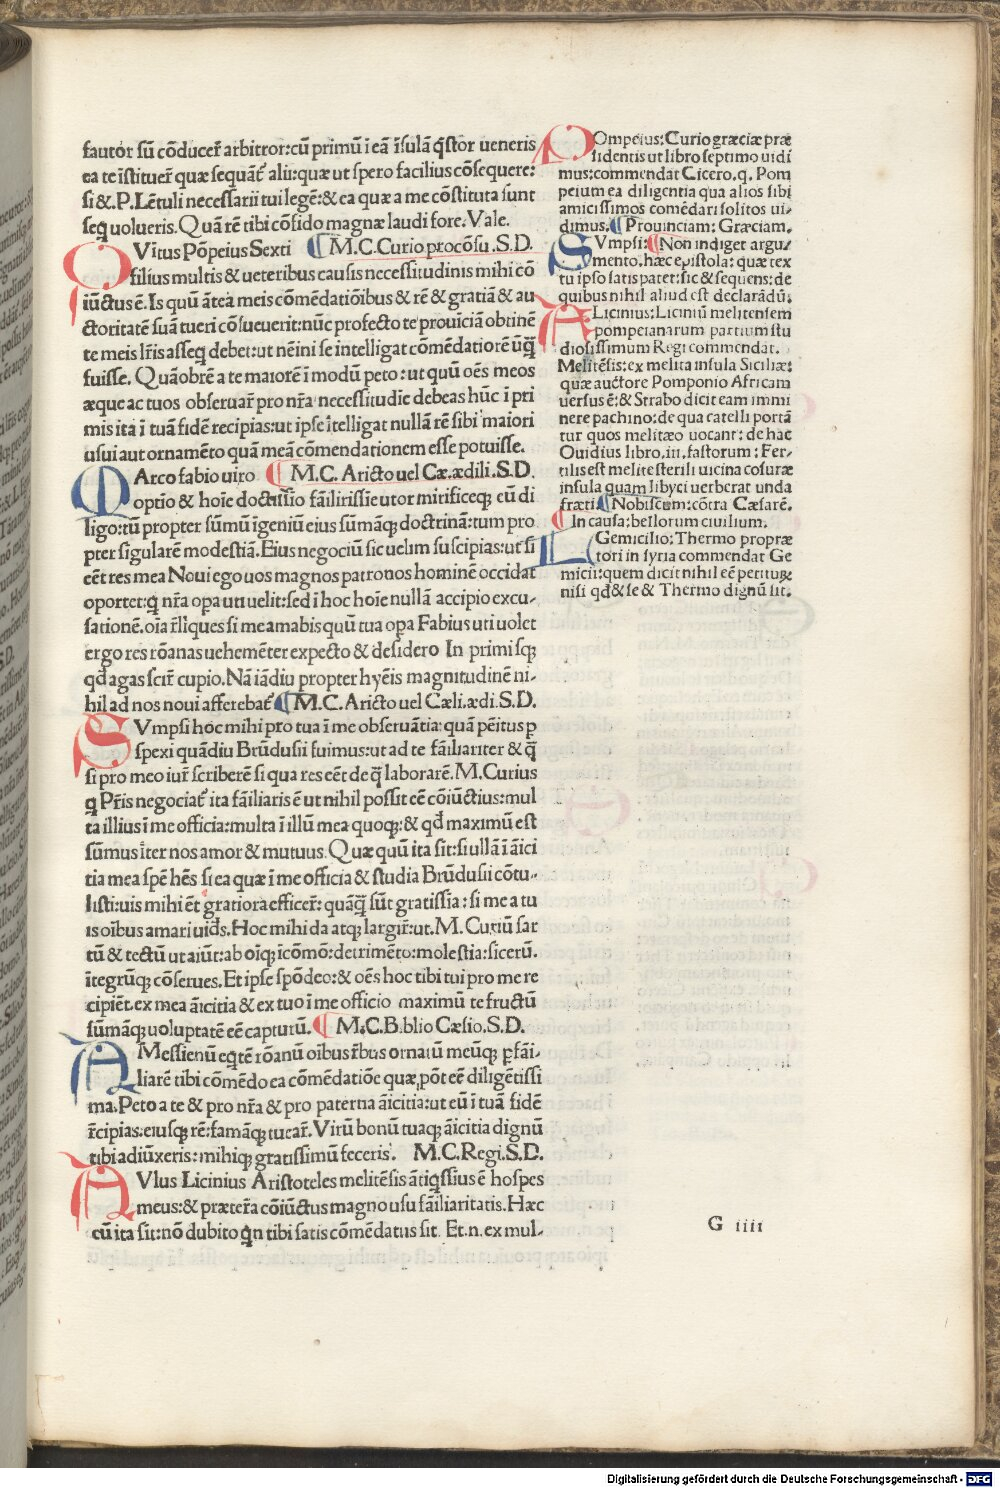 fautor sū cōducer̄ arbitror: cū primū ī eā īsulā q̄stor ueneris
ea te īstituer̄ quæ sequāt᷑ alii: quæ ut spero facilius cōsequere:
si & .P. Lētuli necessarii tui legē: & ea quæ a me cōstituta sunt
seq̄ uolueris. Quā rē tibi cōfido magnæ laudi fore. Vale.
QVitus Pōpeius Sexti ¶ M.C. Curio procōsu. S.D.
filius multis & ueteribus causis necessitudinis mihi cō
iūctus ē. Is quū ātea meis cōmēdatiōibus & rē & gratiā & au
ctoritatē suā tueri cōsueuerit: nūc profecto te prouīciā obtinē
te meis lr̄is asseq̄ debet: ut nēini se intelligat cōmēdatiorē ūq̄
fuisse. Quāobrē a te maiorē ī modū peto: ut quū oēs meos
æque ac tuos obseruar̄ pro nr̄a necessitudīe debeas hūc ī pri
mis ita ī tuā fidē recipias: ut ipse ītelligat nullā rē sibi maiori
usui aut ornamēto quā meā cōmendationem esse potuisse.
MArco fabio uiro ¶ M.C. Aricto uel Cæ. ædili. S.D.
optio & hoīe doctissīo fāilirissīe utor mirificeq; eū di
ligo: tū propter sūmū īgeniū eius sūmāq; doctrinā: tum pro
pter sigularē modestiā. Eius negociū sic uelim suscipias: ut si
eēt res mea Noui ego uos magnos patronos hominē occidat
oportet: q̄ nr̄a opa uti uelit: sed ī hoc hoīe nullā accipio excu-
sationē. oīa r̄līques si me amabis quū tua opa Fabius uti uolet
ergo res rōanas uehemēter expecto & desidero In primisq;
qd̄ agas scir̄ cupio. Nā iādiu propter hyēis magnitudinē ni-
hil ad nos noui afferebat᷑ ¶ M.C. Aricto uel Cæli. ædi. S.D.
SVmpsi hoc mihi pro tua ī me obseruātia: quā pēitus p
spexi quādiu Brūdusii fuimus: ut ad te fāiliariter & q̄
si pro meo iur̄ scriberē si qua res eēt de q̄ laborarē. M. Curius
q̄ Pr̄is negociat᷑ ita fāiliaris ē ut nihil possit eē cōiūctius: mul
ta illius ī me officia: multa ī illū mea quoq;: & qd̄ maximū est
sūmus īter nos amor & mutuus. Quæ quū ita sīt: si ullā ī āici
tia mea spē hēs si ea quæ ī me officia & studia Brūdusii cōtu-
listi: uis mihi ēt gratiora efficer̄: quāq̄ sūt gratissīa: si me a tu
is oībus amari uides. Hoc mihi da atq; largir̄: ut. M. Curiū sar
tū & tectū ut aiūt: ab oīq; īcōmō: detrimēto: molestia: sicerū.
ītegrūq; cōserues. Et ipse spōdeo: & oēs hoc tibi tui pro me re
cipiēt. ex mea āicitia & ex tuo ī me officio maximū te fructū
sūmāq; uoluptatē eē capturū. ¶ M.C. Biblio Cæsio. S.D.
AMessienū eq̄tē rōanū oībus r̄bus ornatū meūq; p̄fāi-
liarē tibi cōmēdo ea cōmēdatiōe quæ pōt eē diligētissi
ma. Peto a te & pro nr̄a & pro paterna āicitia: ut eū ī tuā fidē
r̄cipias. eiusq; rē: famāq; tuear̄. Virū bonū tuaq; āicitia dignū
tibi adiūxeris: mihiq; gratissimū feceris. M.C. Regi. S.D.
AVlus Licinius Aristoteles melitēsis ātiq̄ssius ē hospes
meus: & præter̄a cōiūctus magno usu fāiliaritatis. Hæc
cū ita sīt: nō dubito q̄n tibi satis cōmēdatus sit. Et .n. ex mul-
POmpeius: Curio græciæ præ
sidentis ut libro septimo uidi
mus: commendat Cicero. q. Pom
peium ea diligentia qua alios sibi
amicissimos comēdari solitos ui-
dimus. ¶ Prouinciam: Græciam.
SVmpsi: ¶ Non indiget argu-
mento. hæc epistola: quæ tex
tu ipso satis patet: sic & sequens: de
quibus nihil aliud est declarādū.
ALicinius: Liciniū melitensem
pompeianarum partium stu
diosissimum Regi commendat.
Melitēsis: ex melita insula Siciliæ:
quæ auctore Pomponio Africam
uersus ē: & Strabo dicit eam immi
nere pachino: de qua catelli portā
tur quos melitæo uocant: de hac
Ouidius libro. iii. fastorum: Fer-
tilis est melite sterili uicina cosuræ
insula quam libyci uerberat unda
fræti ¶ Nobiscum: cōtra Cæsarē.
¶ In causa: bellorum ciuilium.
LGemicilio: Thermo propræ
tori in syria commendat Ge
micii: quem dicit nihil eē periturꝝ
nisi qd̄ & se & Thermo dignū sit.
G iiii
Digitalisierung gefördert durch die Deutsche Forschungsgemeinschaft - DFG